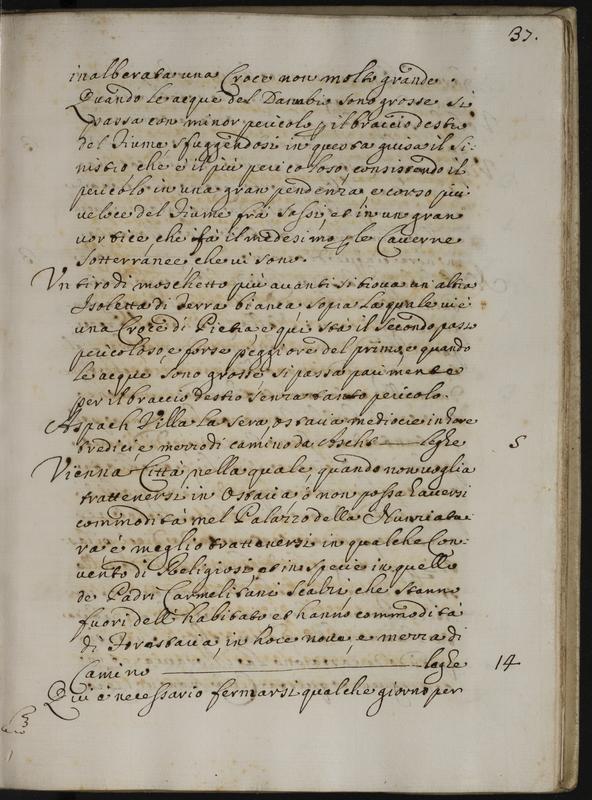 37.
inalberata una Croce non molto grande.
Quando le acque del Danubio sono grosse si
passa con minor pericolo p il braccio destro
del fiume sfuggendosi in questa guisa il Si:
nistro che è il più pericoloso, consistendo il
pericolo in una gran pendenza e corso più
veloce del fiume frà sassi, et in un gran
vortice che fà il medesimo p le Caverne
sotterranee che vi sono.
Un tiro di moschetto più avanti si trova un'altra
Isoletta di terra bianca sopra la quale vi è
una Croce di Pietra e qui stà il secondo passo
pericoloso, e forse peggiore del primo, e quando
le acque sono grosse si passa parimente
per il braccio destro senza tanto pericolo.
Aspach Villa la sera, ostaria mediocre in hore
tredici e mezzo di camino da Aschs leghe 5
Vienna Città, nella quale quando non voglia
trattenersi in Ostaria ò non possa haversi
commodità nel Palazzo della Nunziatu:
ra è meglio trattenersi in qualche Con:
vento di Religiosi, et in specie in quello
de Padri Carmelitani Scalzi che stanno
fuori dell'habitato et hanno commodità
di forastaria, in hore nove, e mezza di
Camino leghe 14
Qui è necessario fermarsi qualche giorno per